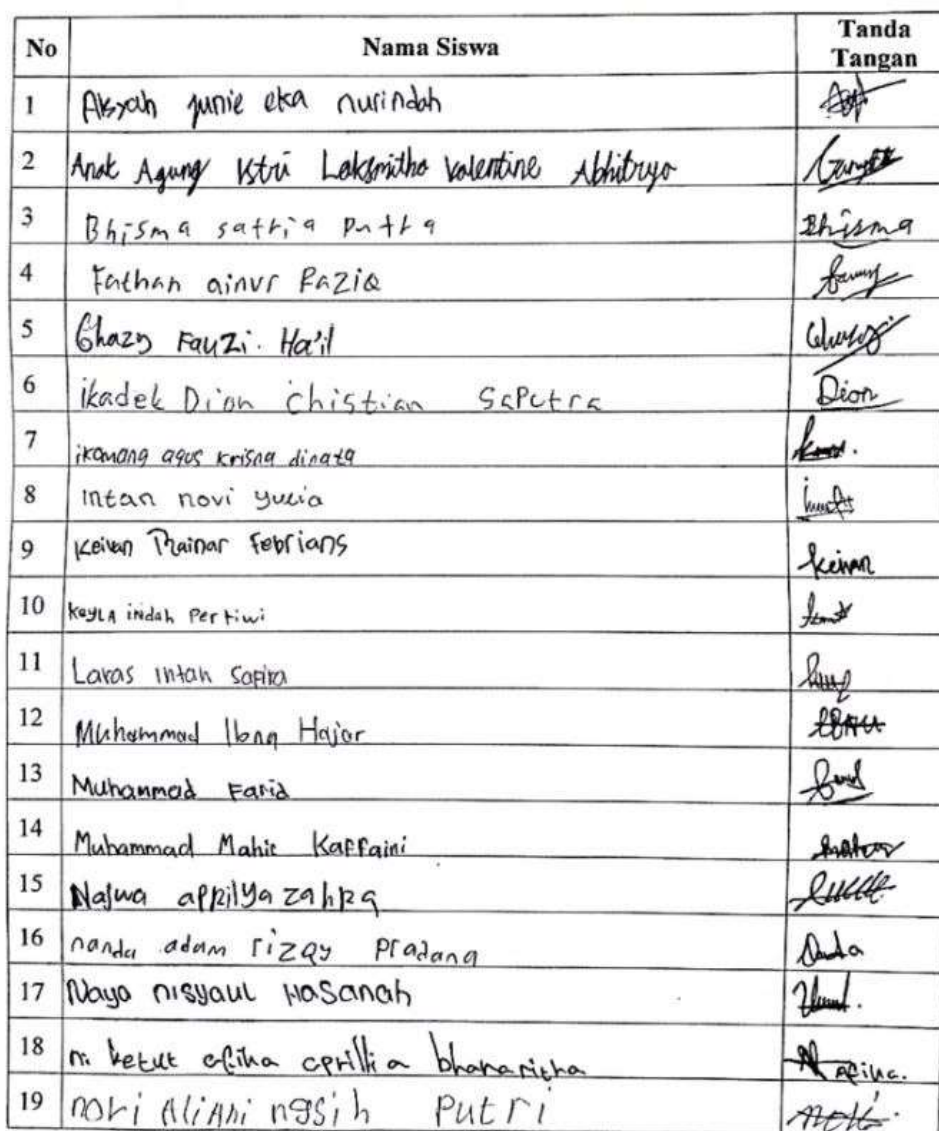 No Nama Siswa Tanda Tangan
1 Aisyah junie eka nurindah
2 Anak Agung Istri Laksmitha Valentine Abhitrya
3 Bhisma satria putra Bhisma
4 Fathan ainur Raziq
5 Ghazy Fauzi. Ha'il
6 ikadek Dion Christian Saputra Dion
7 ikomang agus krisna dinata
8 Intan novi yulia
9 Keivan Rainar Febrians keivan
10 kayLA indah Pertiwi
11 Laras intan Safira
12 Muhammad Ibnu Hajar
13 Muhammad Farid
14 Muhammad Mahir Kaffaini
15 Najwa aprilya zahra
16 nanda adam rizqy pradana
17 Naya nisyaul Hasanah
18 ni ketut afika aprillia afika.
19 Putri